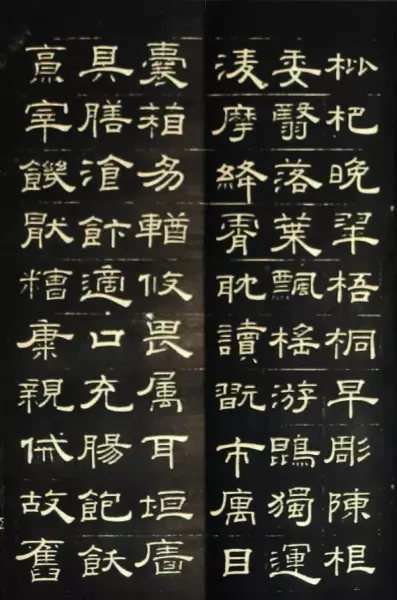 枇杷晚翠梧桐早彫陳根
委翳落葉飄榣游鵾獨運
凌摩絳霄耽讀翫市寓目
囊箱易輶攸畏属耳垣牆
具膳湌飰適口充腸飽飫
烹宰饑厭糟糠親戚故舊